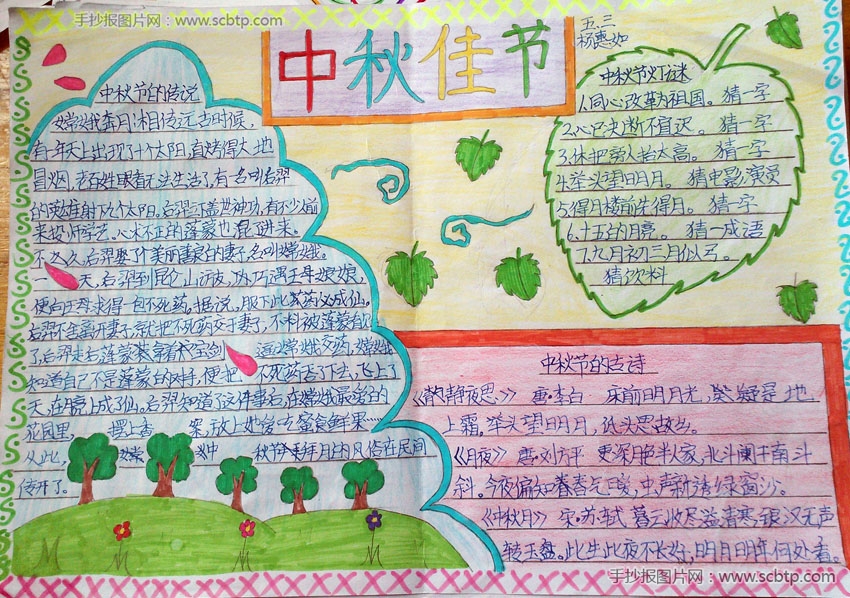 手抄报图片网：www.scbtp.com
中秋佳节
五.三
杨惠如
中秋节的传说
嫦娥奔月：相传远古时候，
有一年天上出现了十个太阳，直烤得大地
冒烟，老百姓眼看无法生活了，有一名叫后羿
的英雄射下九个太阳。后羿立盖世神功，有不少人前
来投师学艺。心术不正的蓬蒙也混进来。
不久，后羿娶了美丽善良的妻子，名叫嫦娥。
一天，后羿到昆仑山访友，巧遇王母娘娘，
便向王母求得一包不死药。据说，服下此药成仙。
后羿不舍离开妻子，就把不死药交于妻子，不料被蓬蒙
了后羿走后，蓬蒙 宝剑 逼嫦娥交药，嫦娥
知道自己不是蓬蒙的对手，便把不死药吞了下去，飞上了
天，在月亮上成了仙。后羿知道了这件事后，在嫦娥最爱的
花园里，摆上香案，放上她爱吃蜜食鲜果……
从此，中秋节 月的风俗在民间
传开了。
中秋节灯谜
1.同心改革为祖国。猜一字
2.心已决断不宜迟。猜一字
3.休把旁人抬太高。猜一字
4.举头望明月。猜电影演员
5.得月楼前先得月。猜一字
6.十五的月亮。猜一成语
7.九月初三月似弓。
猜饮料
中秋节的古诗
《静夜思》唐·李白 床前明月光，疑是地
上霜。举头望明月，低头思故乡。
《月夜》唐·刘方平 更深月色半人家，北斗阑干南斗
斜。今夜偏知春气暖，虫声新透绿窗沙。
《中秋月》宋·苏轼 暮云收尽溢清寒，银汉无声
转玉盘。此生此夜不长好，明月明年何处看。
手抄报图片网：www.scbtp.com